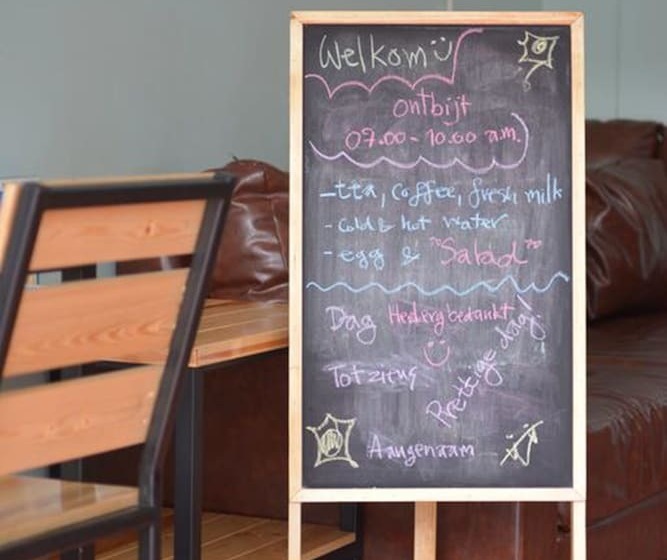 Welkom
ontbijt
07.00 - 10.00 a.m.
- tea, coffee, fresh milk
- cold & hot water
- egg & "Salad"
Dag
Hedley bedankt
Tot ziens
Prettige dag!
Aangenaam